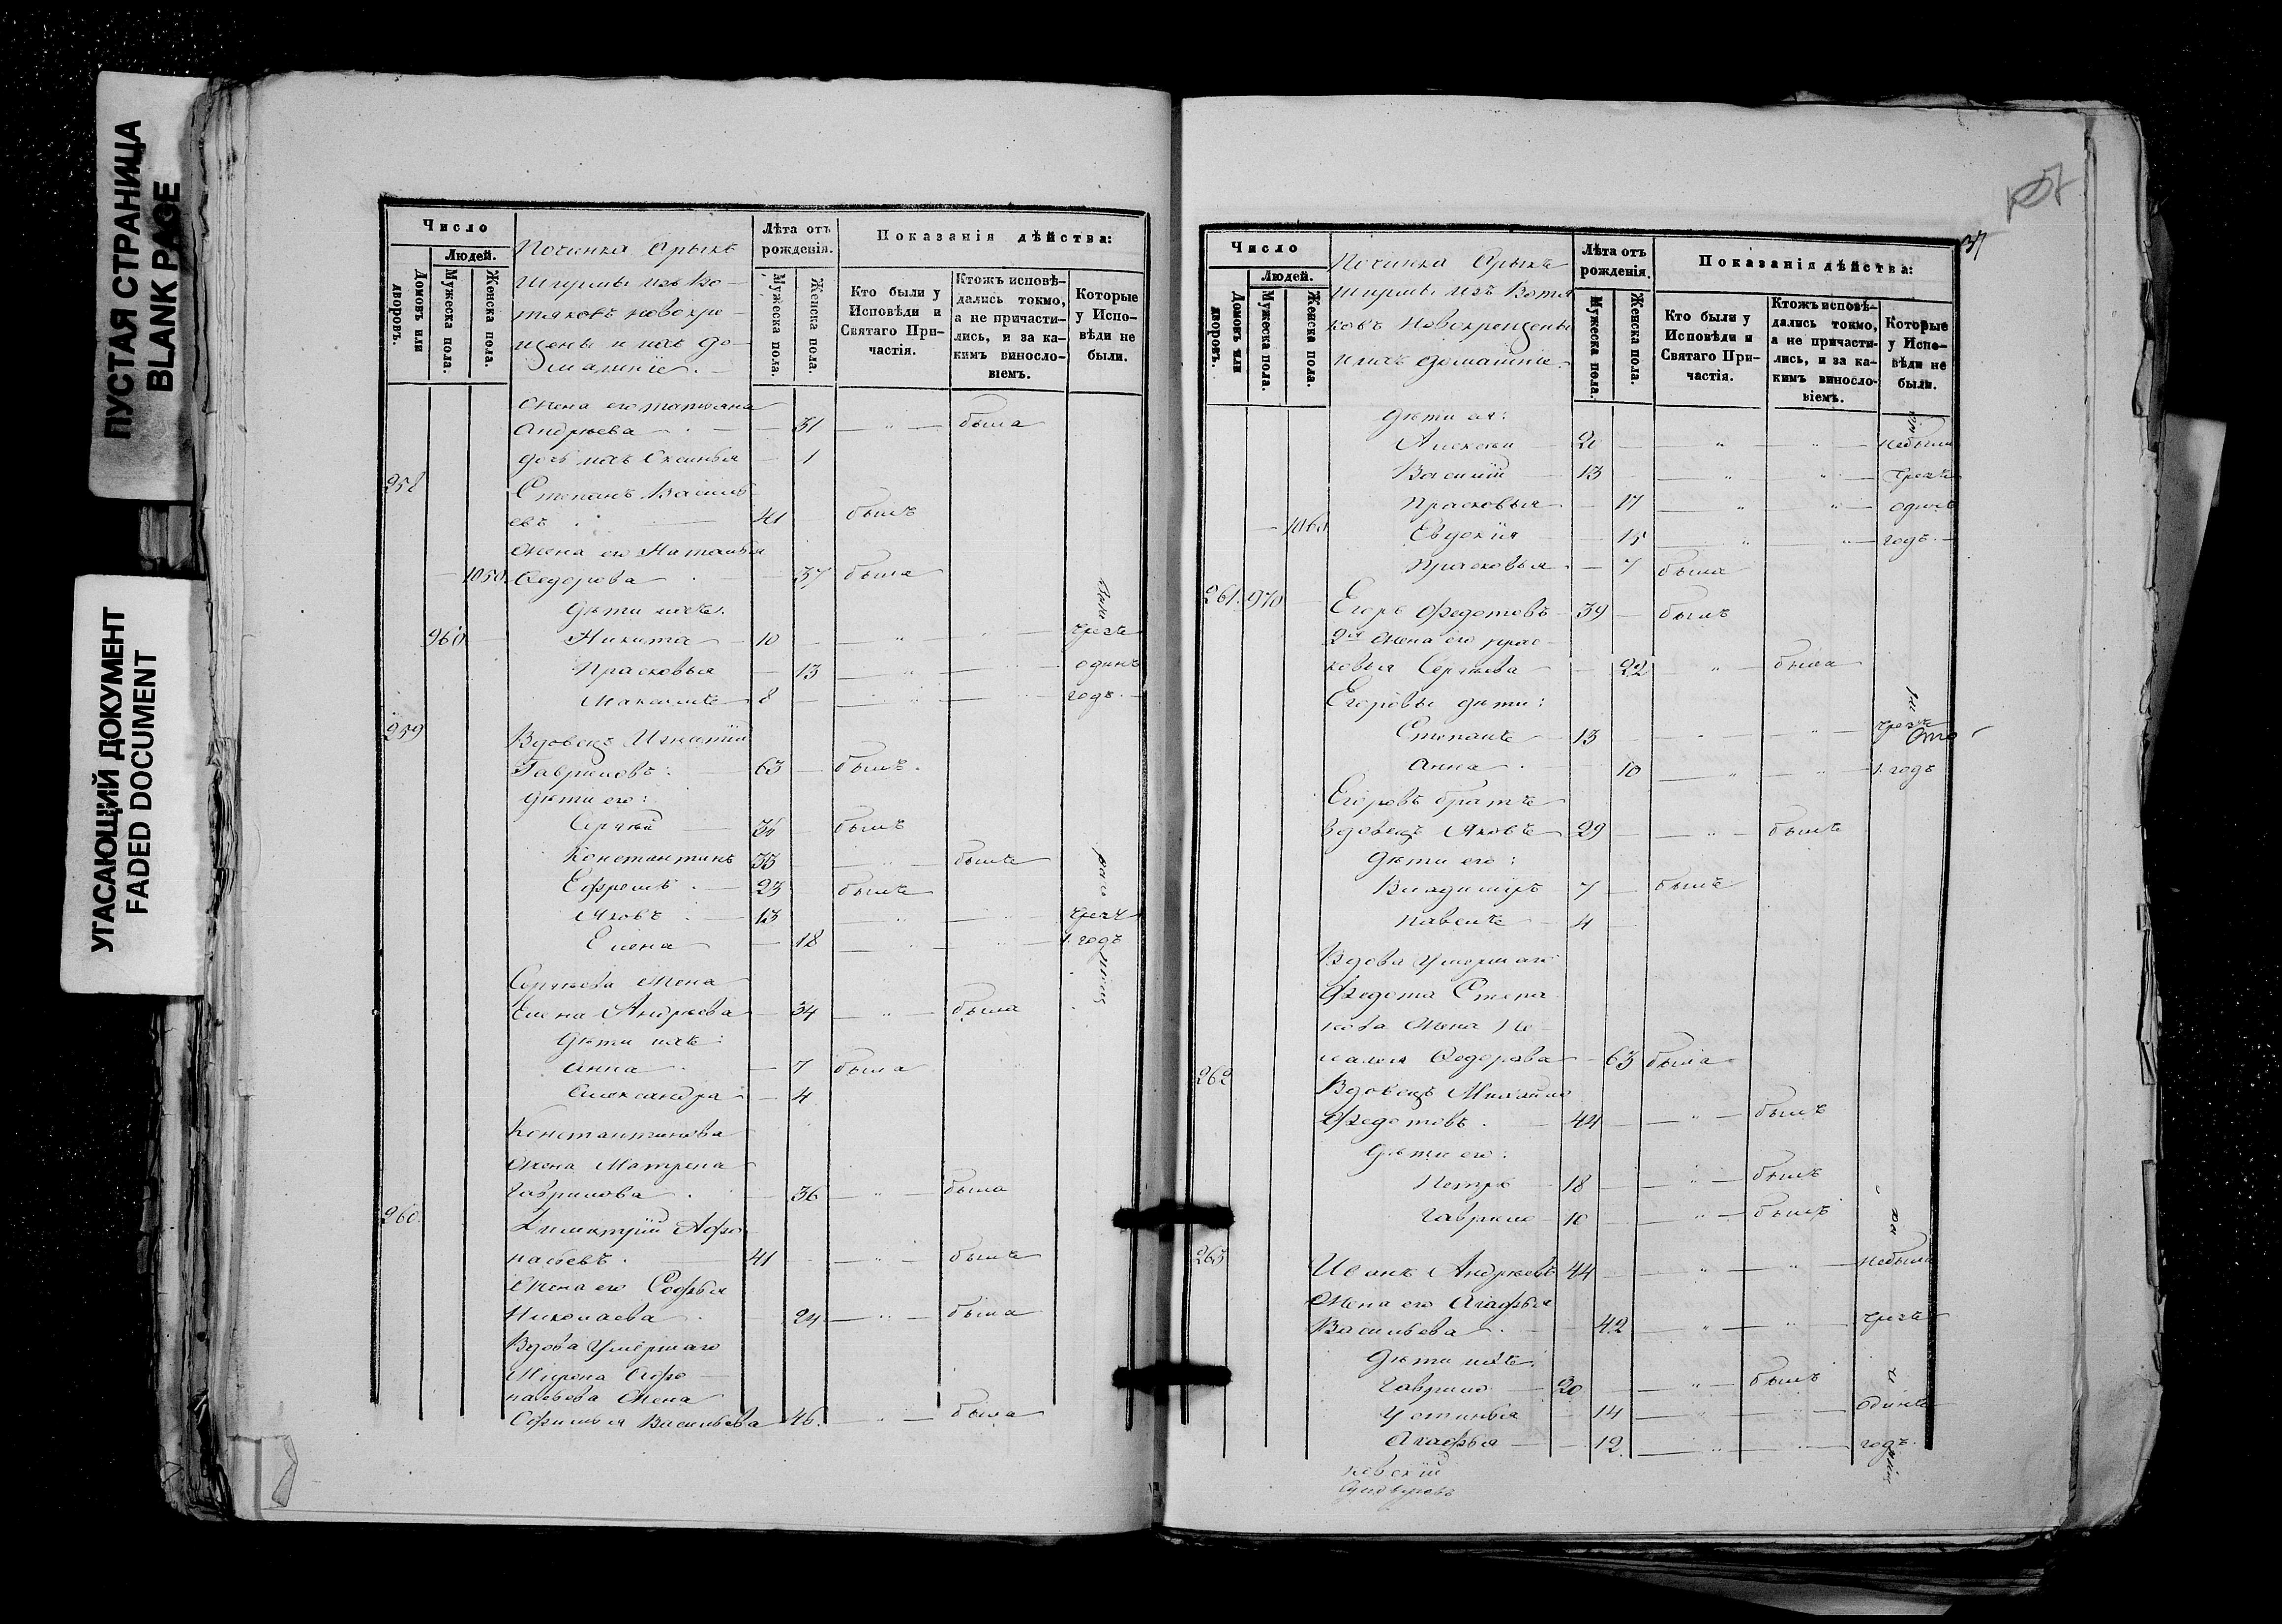 ПУСТАЯ СТРАНИЦА
BLANK PAGE
УГАСАЮЩИЙ ДОКУМЕНТ
FADED DOCUMENT
Число
Людей.
Домовъ или дворовъ.
Мужеска пола.
Женска пола.
Починка
изъ Во-
тяковъ новокре-
щены и ихъ до-
машніе.
Лѣта отъ рожденія.
Мужеска пола.
Женска пола.
Показанія дѣйства:
Кто были у Исповѣди и Святаго Причастія.
Ктожъ исповѣ-
дались токмо,
а не причасти-
лись, и за ка-
кимъ винословіемъ.
Которые у Исповѣди не были.
Жена его Татьяна
Андреева 31 " была
дочь ихъ Ксенья 1
258 Степанъ Василь-
евъ 41 былъ
Жена его Наталья
1050 Федорова 37 была
Дѣти ихъ:
960 Никита 10 " " чрезъ
Прасковья 13 " " одинъ
Максимъ 8 " " годъ.
259 Вдовецъ Игнатій
Гавриловъ 63 былъ.
Дѣти его:
Сергѣй былъ
Константинъ 33 " былъ
Ефремъ 23 былъ
Яковъ 13 " " чрезъ
Елена 18 " " 1. годъ
Сергѣева Жена
Елена Андреева 34 " была
Дѣти ихъ:
Анна 7 была
Александра 4
Константинова
Жена Матрена
Гаврилова 36 " была
260. Димитрій Афо-
насьевъ 41 " былъ
Жена его Софья
Николаева 24 " была
Вдова Умершаго
Мирона Афо-
насьева Жена
Васильева 46. " была
Число
Людей.
Домовъ или дворовъ.
Мужеска пола.
Женска пола.
Починка
изъ Вотя
ковъ Новокрещены
и ихъ домашніе.
Лѣта отъ рожденія.
Мужеска пола.
Женска пола.
Показанія дѣйства:
Кто были у Исповѣди и Святаго Причастія.
Ктожъ исповѣ-
дались токмо,
а не причасти-
лись, и за ка-
кимъ винословіемъ.
Которые у Исповѣди не были.
Дѣти ея:
Алексѣй 20 " " небыли
Василій 13 " " чрезъ
Прасковья 17 " " одинъ
1060 Евдокія 15 " " годъ.
Прасковья 7 была
261. 970 Егоръ Федотовъ 39 былъ
2я Жена его Прас-
ковья Сергѣева 22 " была
Егоровы дѣти:
Степанъ 13 " " чрезъ
Анна 10 " " 1. годъ
Егоровъ братъ
вдовецъ Яковъ 29 " былъ
Дѣти его:
Владимиръ 7 былъ
Павелъ 4
Вдова Умершаго
Федота Степа
нова Жена
Федорова 63 была
262 Вдовецъ Михайло
Федотовъ 44 " былъ
Дѣти его:
Петръ 18 " былъ
Гаврило 10 " былъ
263 Иванъ Андреевъ 44 " " небыли
Жена его Агафья
Васильева 42 " " чрезъ
Дѣти ихъ:
Гаврило 20 " былъ
Устинья 14 " " одинъ
Агафья 12. " " годъ.